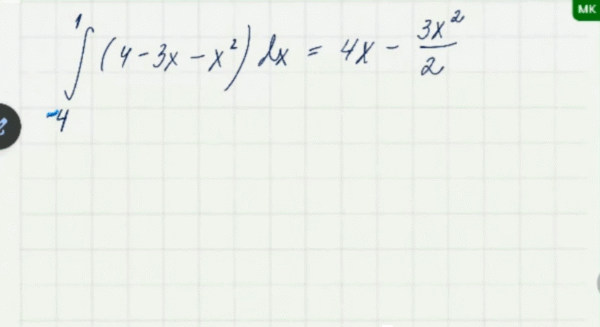 MK
∫₋₄¹ (4 - 3x - x²) dx = 4x - 3x²/2